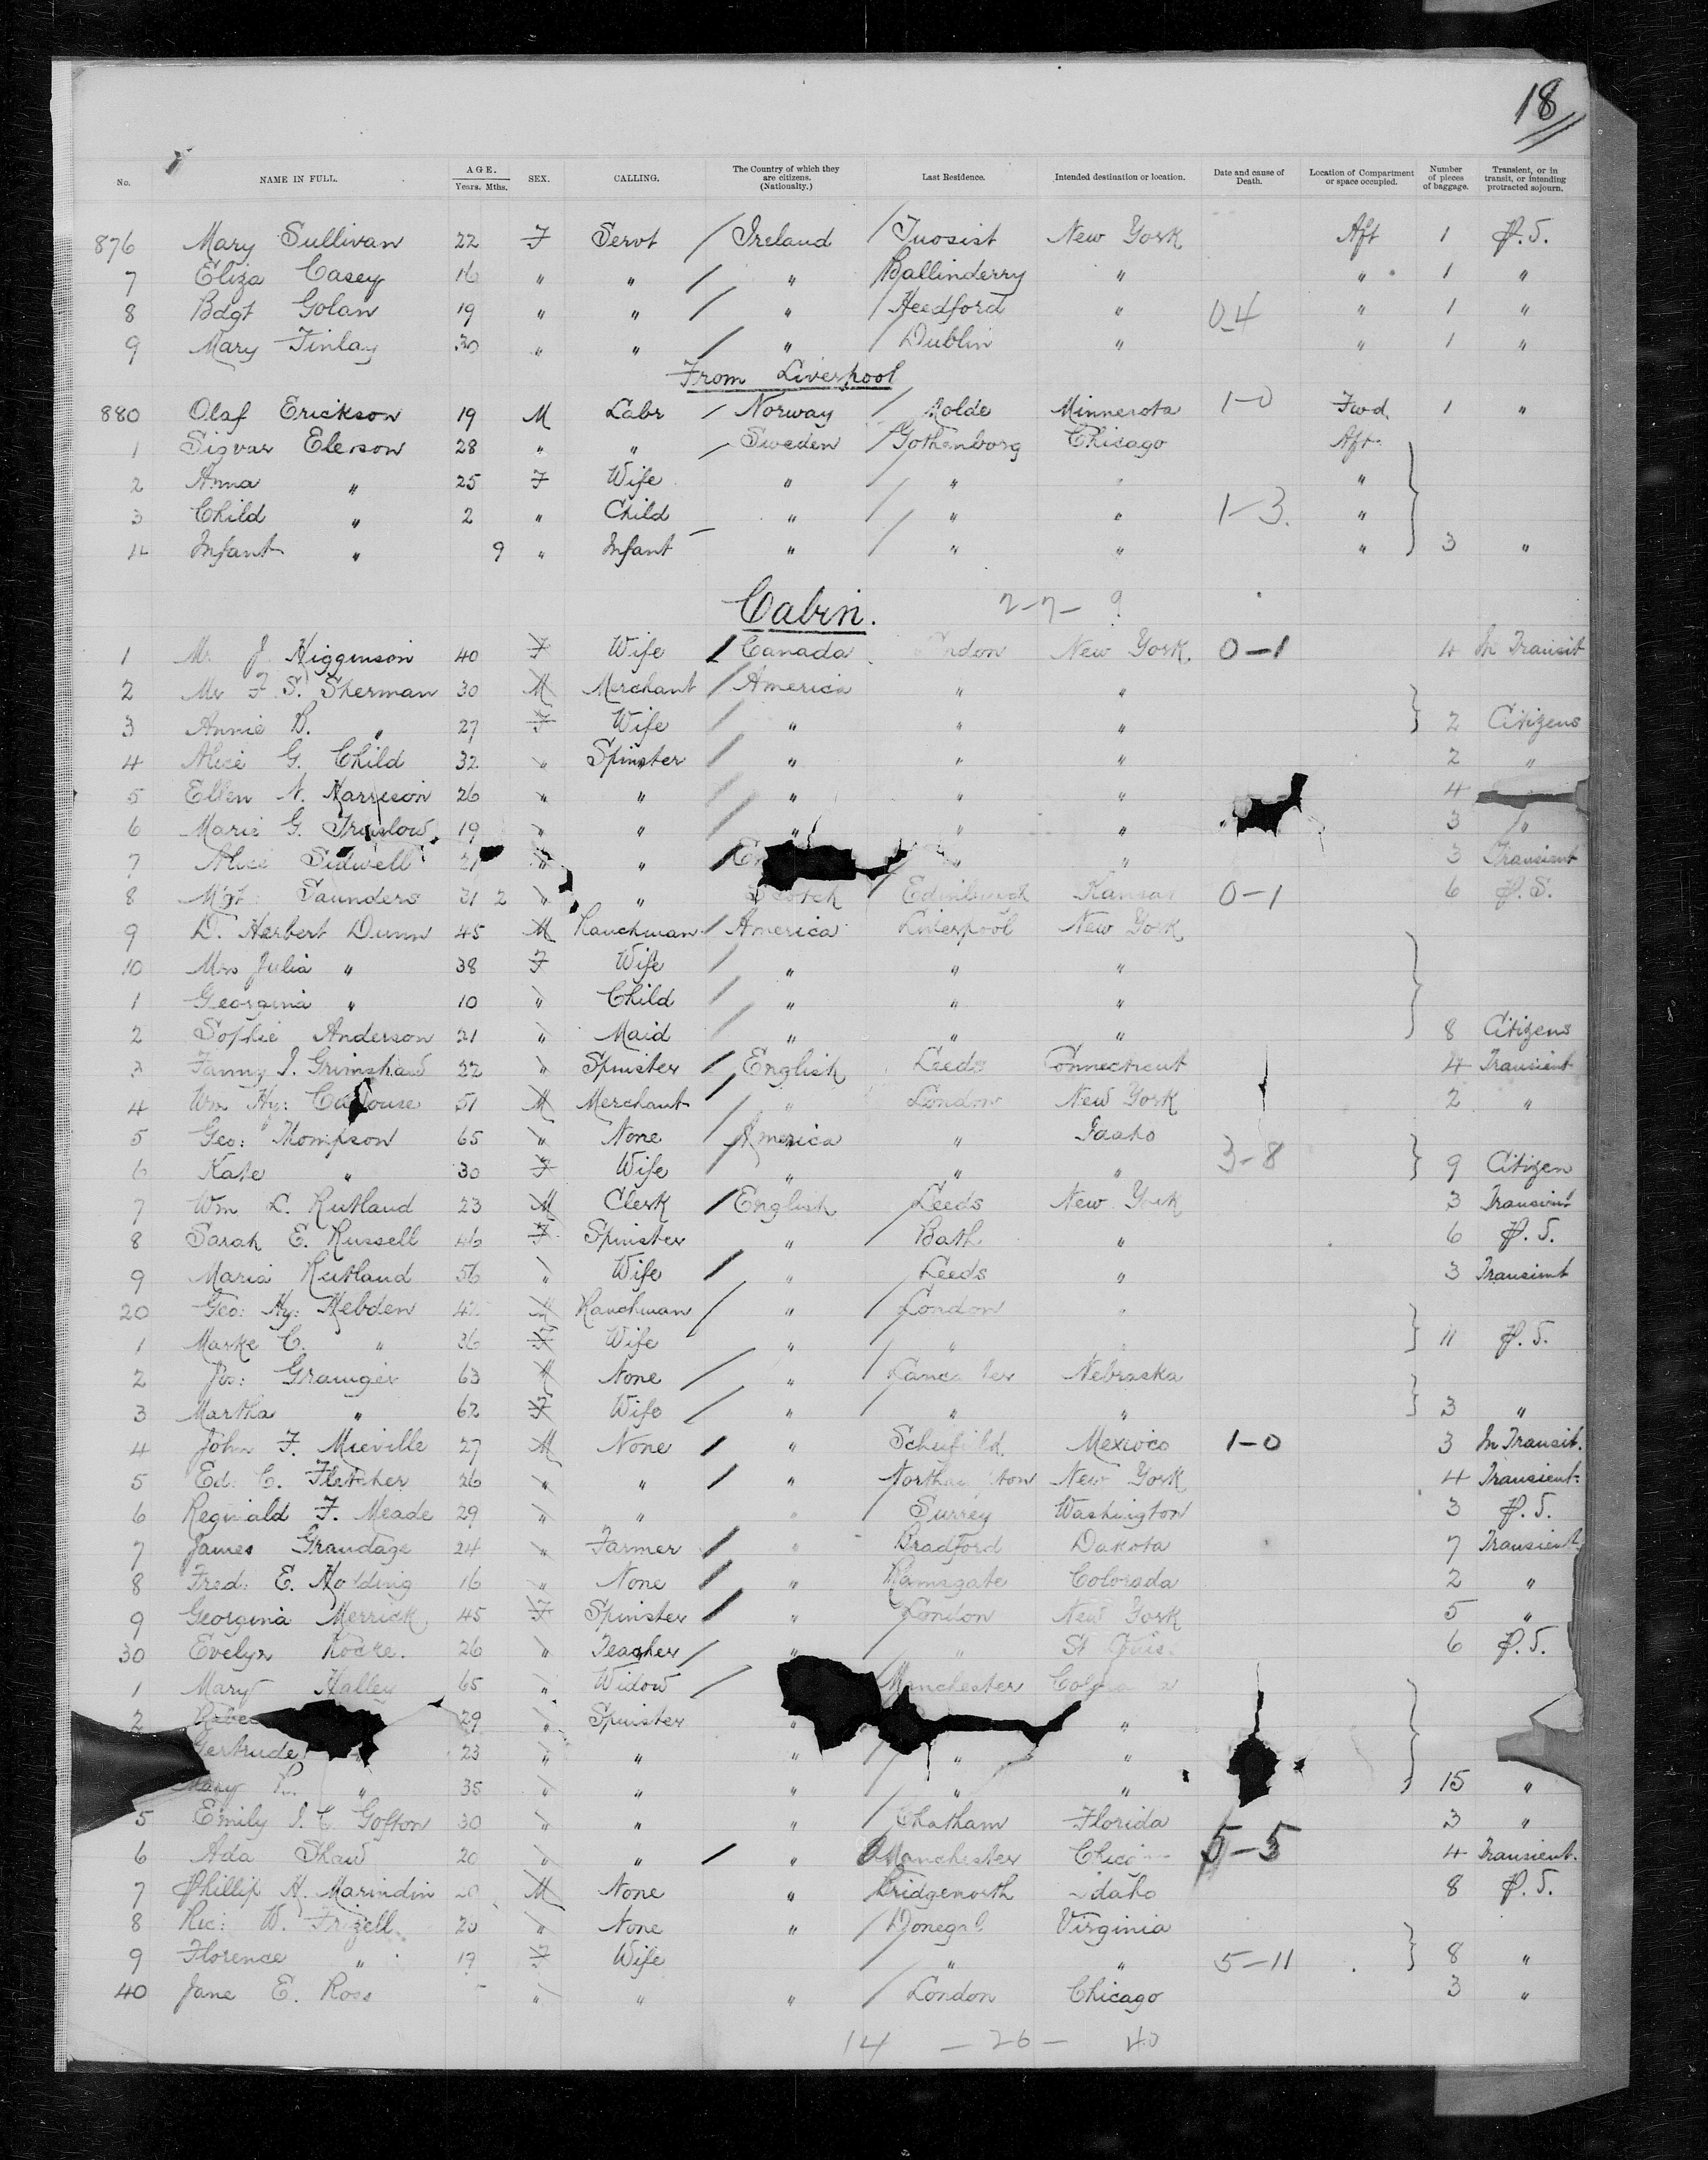 18
No. NAME IN FULL. AGE. Years. Mths. SEX. CALLING. The Country of which they are citizens. (Nationalty.) Last Residence. Intended destination or location. Date and cause of Death. Location of Compartment or space occupied. Number of pieces of baggage. Transient, or in transit, or intending protracted sojourn.
876 Mary Sullivan 22 F Servt / Ireland / Tuosist New York Aft 1 P.S.
7 Eliza Casey 16 " " / " / Ballinderry " " 1 "
8 Bdgt Golan 19 " " / " / Headford " 0-4 " 1 "
9 Mary Finlay 30 " " / " / Dublin " " 1 "
From Liverpool
880 Olaf Erickson 19 M Labr / Norway / Molde Minnesota 1-0 Fwd. 1 "
1 Sigvar Elerson 28 " " / Sweden / Gothenborg Chicago Aft
2 Anna " 25 F Wife " / " " "
3 Child " 2 " Child " / " " 1-3. "
4 Infant " 9 " Infant " / " " " 3 "
Cabin. 2-7- 9
1 J. Higginson 40 F Wife / Canada New York. 0-1 4 In Transit
2 Mr F. S. Sherman 30 M Merchant / America " "
3 Annie B. " 27 F Wife / " " " 2 Citizens
4 Alice G. Child 32 " Spinster / " " " 2 "
5 Ellen N. Harrison 26 " " / " " " 4
6 Marie G. 19 " " / " " " 3 "
7 Alice Sidwell 21 " " / " " 3 Transient
8 Mgt: Saunders 31 2 " " Scotch / Edinburgh Kansas 0-1 6 P.S.
9 D. Herbert Dunn 45 M Ranchman / America Liverpool New York
10 Mrs Julia " 38 F Wife / " " "
1 Georgina " 10 " Child / " " "
2 Sophie Anderson 21 " Maid / " " " 8 Citizens
3 Fanny I. Grimshaw 22 " Spinster / English Leeds Connecticut 4 Transient
4 Wm Hy: 51 M Merchant / " London New York 2 "
5 Geo: Thompson 65 " None / America " Idaho
6 Kate " 30 F Wife / " " " 3-8 9 Citizen
7 Wm L. Rutland 23 M Clerk / English Leeds New York 3 Transient
8 Sarah E. Russell 46 F Spinster " / Bath " 6 P.S.
9 Maria Rutland 56 " Wife / " Leeds " 3 Transient
20 Geo: Hy: Hebden M Ranchman / " / London "
1 C. " 36 F Wife " / " " 11 P.S.
2 Jos: Grainger 63 M None / " / Nebraska
3 Martha " 62 F Wife / " / " " 3 "
4 John F. Mieville 27 M None / " Mexico 1-0 3 In Transit.
5 Ed: C. Fletcher 26 " " / " New York 4 Transient.
6 Reginald F. Meade 29 " " " Surrey Washington 3 P.S.
7 James Grandage 24 " Farmer / " Bradford Dakota 7 Transient
8 Fred: E. 16 " None / " Ramsgate Colorado 2 "
9 Georgina Merrick 45 F Spinster / " London New York 5 "
30 Evelyn 26 " Teacher / " / " St 6 P.S.
1 Mary Halley 65 " Widow / Manchester
2 29 " Spinster " "
Gertrude " 23 " " " / " "
Mary " 35 " " " / " " 15 "
5 Emily Gofton 30 " " " / Chatham Florida 3 "
6 Ada Shaw 20 " " / " Manchester 5-5 4 Transient.
7 Phillip H. Marindin M None " Bridgenorth Idaho 8 P.S.
8 Ric: W. Frizell 20 " None " / Donegal Virginia
9 Florence " 19 F Wife / " " 5-11 8 "
40 Jane E. Ross " " " / London Chicago 3 "
14 - 26 - 40